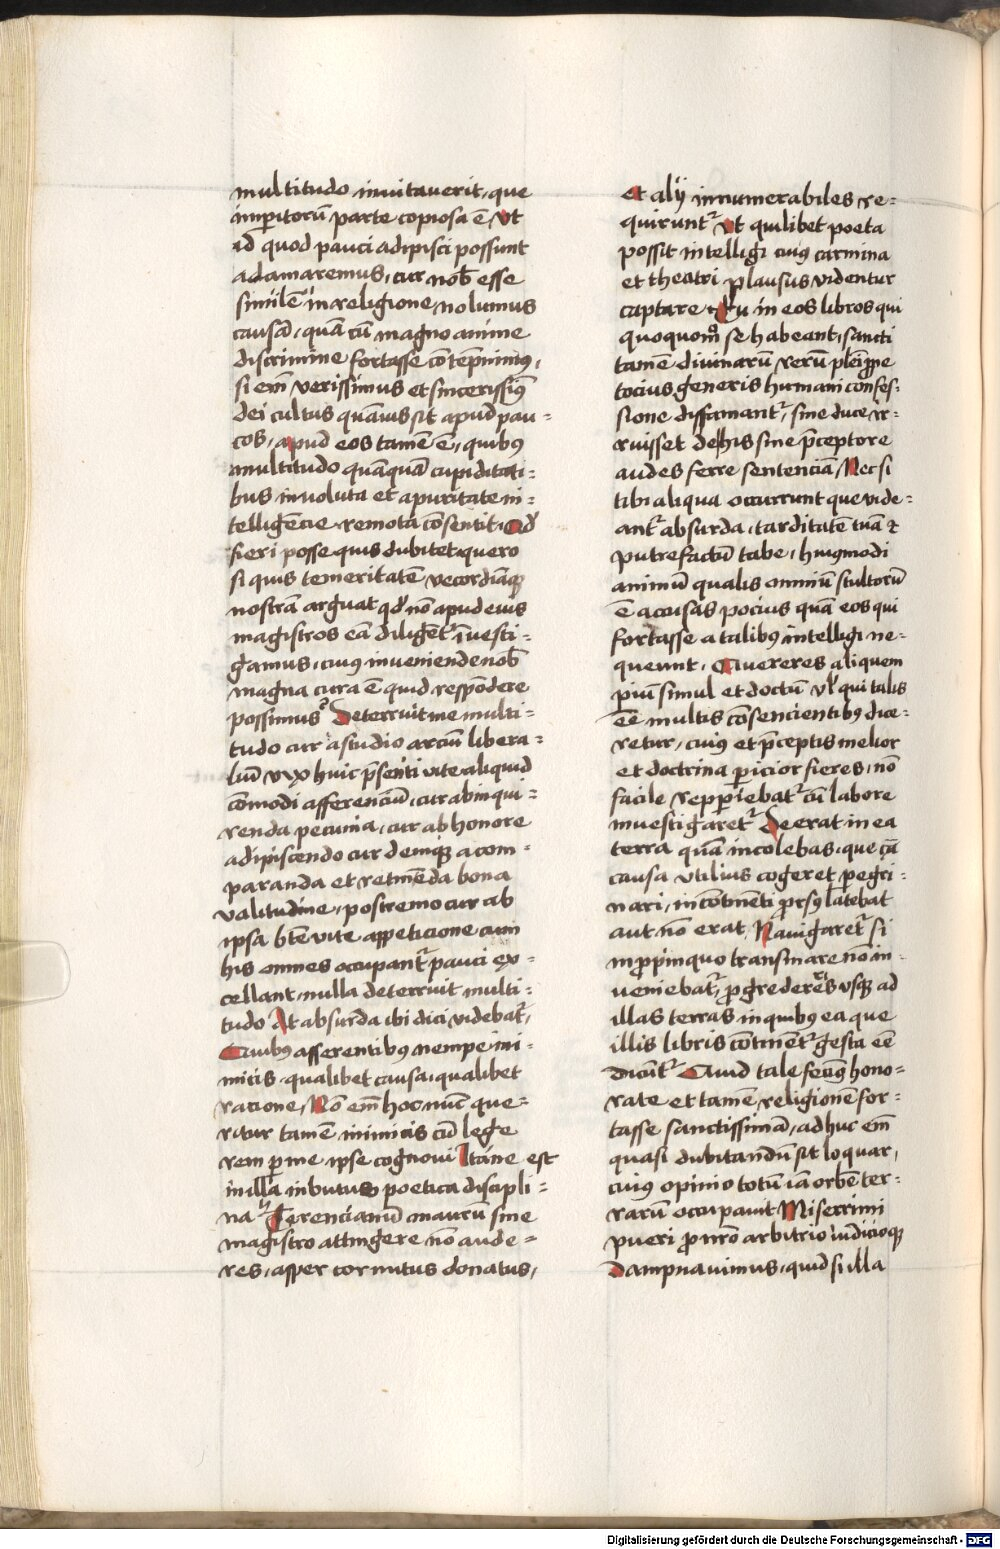 multitudo inuitauerit, que
imperitorū parte copiosa ē Vt
id quod pauci adipisci possunt
adamaremus, cur nob̄ esse
similē in religione nolumus
causā, quā cū magno anime
discrimine fortasse cōtēpnimus,
si em̄ verissimus et sincerissimꝰ
dei cultus quāuis sit apud pau-
cos, apud eos tamē ē, quibꝰ
multitudo quāquā cupiditati-
bus inuoluta et a puritate in-
telligēcie remota cōsentit, Qd̄
fieri posse quis dubitet, quero
si quis temeritatē, vecordiāqꝫ
nostrā arguat qd̄ nō apud eius
magistros eā diligēt̄ inuesti-
gamus, cuiꝰ inueniende nob̄
magna cura ē quid respōdere
possimus Deterruit me multi-
tudo cur a studio arciū libera-
liū vix huic p̄senti vite aliquid
cōmodi afferenciū, cur ab inqui-
renda pecunia, cur ab honore
adipiscendo cur deniqꝫ a com-
paranda et retinēda bona
valitudine, postremo cur ab
ipsa bt̄e vite appeticione cum
his omnes occupant᷑ pauci ex-
cellant, nulla deterruit multi-
tudo At absurda ibi dici videbāt᷑,
Quibꝰ asserentibꝰ nempe ini-
micis qualibet causa, qualibet
racione, Nō em̄ hoc nūc que-
ritur tamē inimicis cū lege
rem per me ipse cognoui Itane est
in illa inbutus poetica discipli-
na Terencianū maurū sine
magistro attingere nō aude-
res, asper cornutus donatus,
et alij innumerabiles re-
quirunt᷑ Vt quilibet poeta
possit intelligi cuiꝰ carmina
et theatri plausus videntur
captare Tu in eos libros qui
quoquom̊ se habeant, sancti
tamē diuinarū rerū pleniqꝫ pene
tocius generis humani confes-
sione diffamant᷑, sine duce ir-
ruisset de his sine p̄ceptore
audes ferre sentenciā, Nec si
tibi aliqua occurrunt que vide-
ant᷑ absurda, tarditatē tuā et
putrefactū tabe, huiꝰmodi
animū qualis omniū stultorū
ē accusas pocius quā eos qui
fortasse a talibꝰ intelligi ne-
queunt, Quereres aliquem
piū simul et doctū vl̄ qui talis
eē multis cōsencientibꝰ dice-
retur, cuiꝰ et p̄ceptis melior
et doctrina pericior fieres, nō
facile repperiebat᷑ cū labore
inuestigaret᷑ Deerat in ea
terra quā incolebas, que cā
causa vtilius cogeret peregri-
nari, in cōtinēti prorsꝰ latebat
aut nō erat, Nauigaret᷑ si
in propinquo trans mare nō in-
ueniebat᷑, progredereris vsqꝫ ad
illas terras in quibꝰ ea que
illis libris cōtinent᷑ gesta eē
dicūt᷑ Quid tale fecimꝰ hono-
rate et tamē religionē for-
tasse sanctissimā, adhuc em̄
quasi dubitandū sit loquar,
cuiꝰ opinio totū iā orbē ter-
rarū occupauit Miserrimi
pueri pro nr̄o arbitrio iudicioqꝫ
dampnauimus, quid si illa
Digitalisierung gefördert durch die Deutsche Forschungsgemeinschaft - DFG